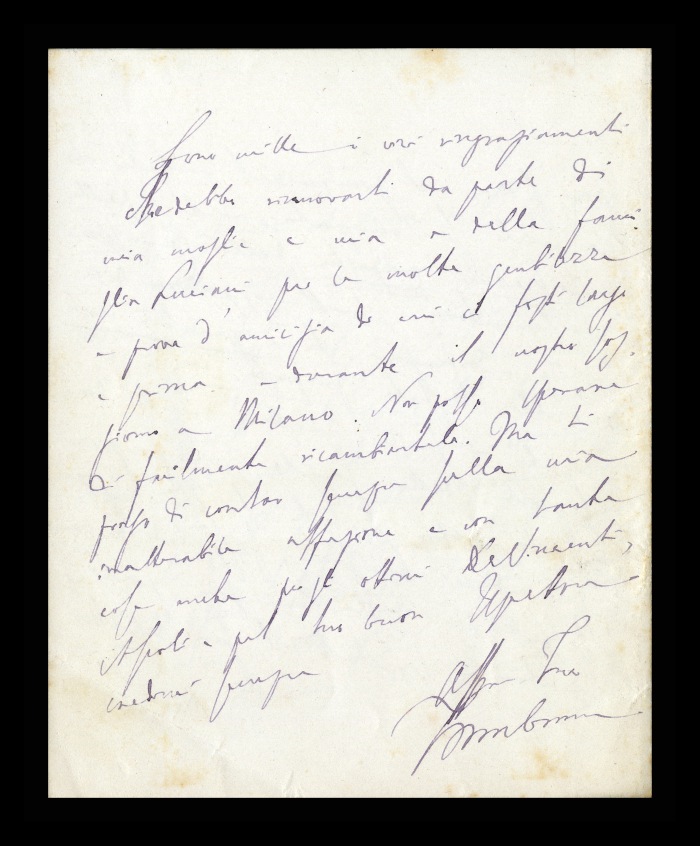 Sono mille i veri ringraziamenti
che debbo rinnovarti da parte di
mia moglie e mia e della fami
glia Luciani per le molte gentilezze
e prova d'amicizia di cui ci fosti largo
e prima e durante il nostro sog.
giorno a Milano. Non posso sperare
di facilmente ricambiartele. Ma ti
prego di contar sempre sulla mia
inalterabile affezione e con tante
cose anche per gli ottimi
e pel tuo buon
credimi sempre
Aff. Tuo